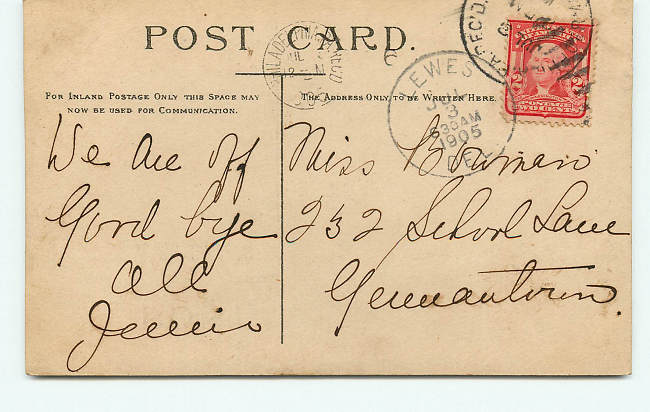 POST CARD.
FOR INLAND POSTAGE ONLY THIS SPACE MAY
NOW BE USED FOR COMMUNICATION.
THE ADDRESS ONLY TO BE WRITTEN HERE.
We are off
Good bye
all
Jennie
Miss Bowman
232 School Lane
Germantown.
LEWES
JUL
3
630AM
1905
DEL
REC'D.
POSTAGE
TWO CENTS
2 2